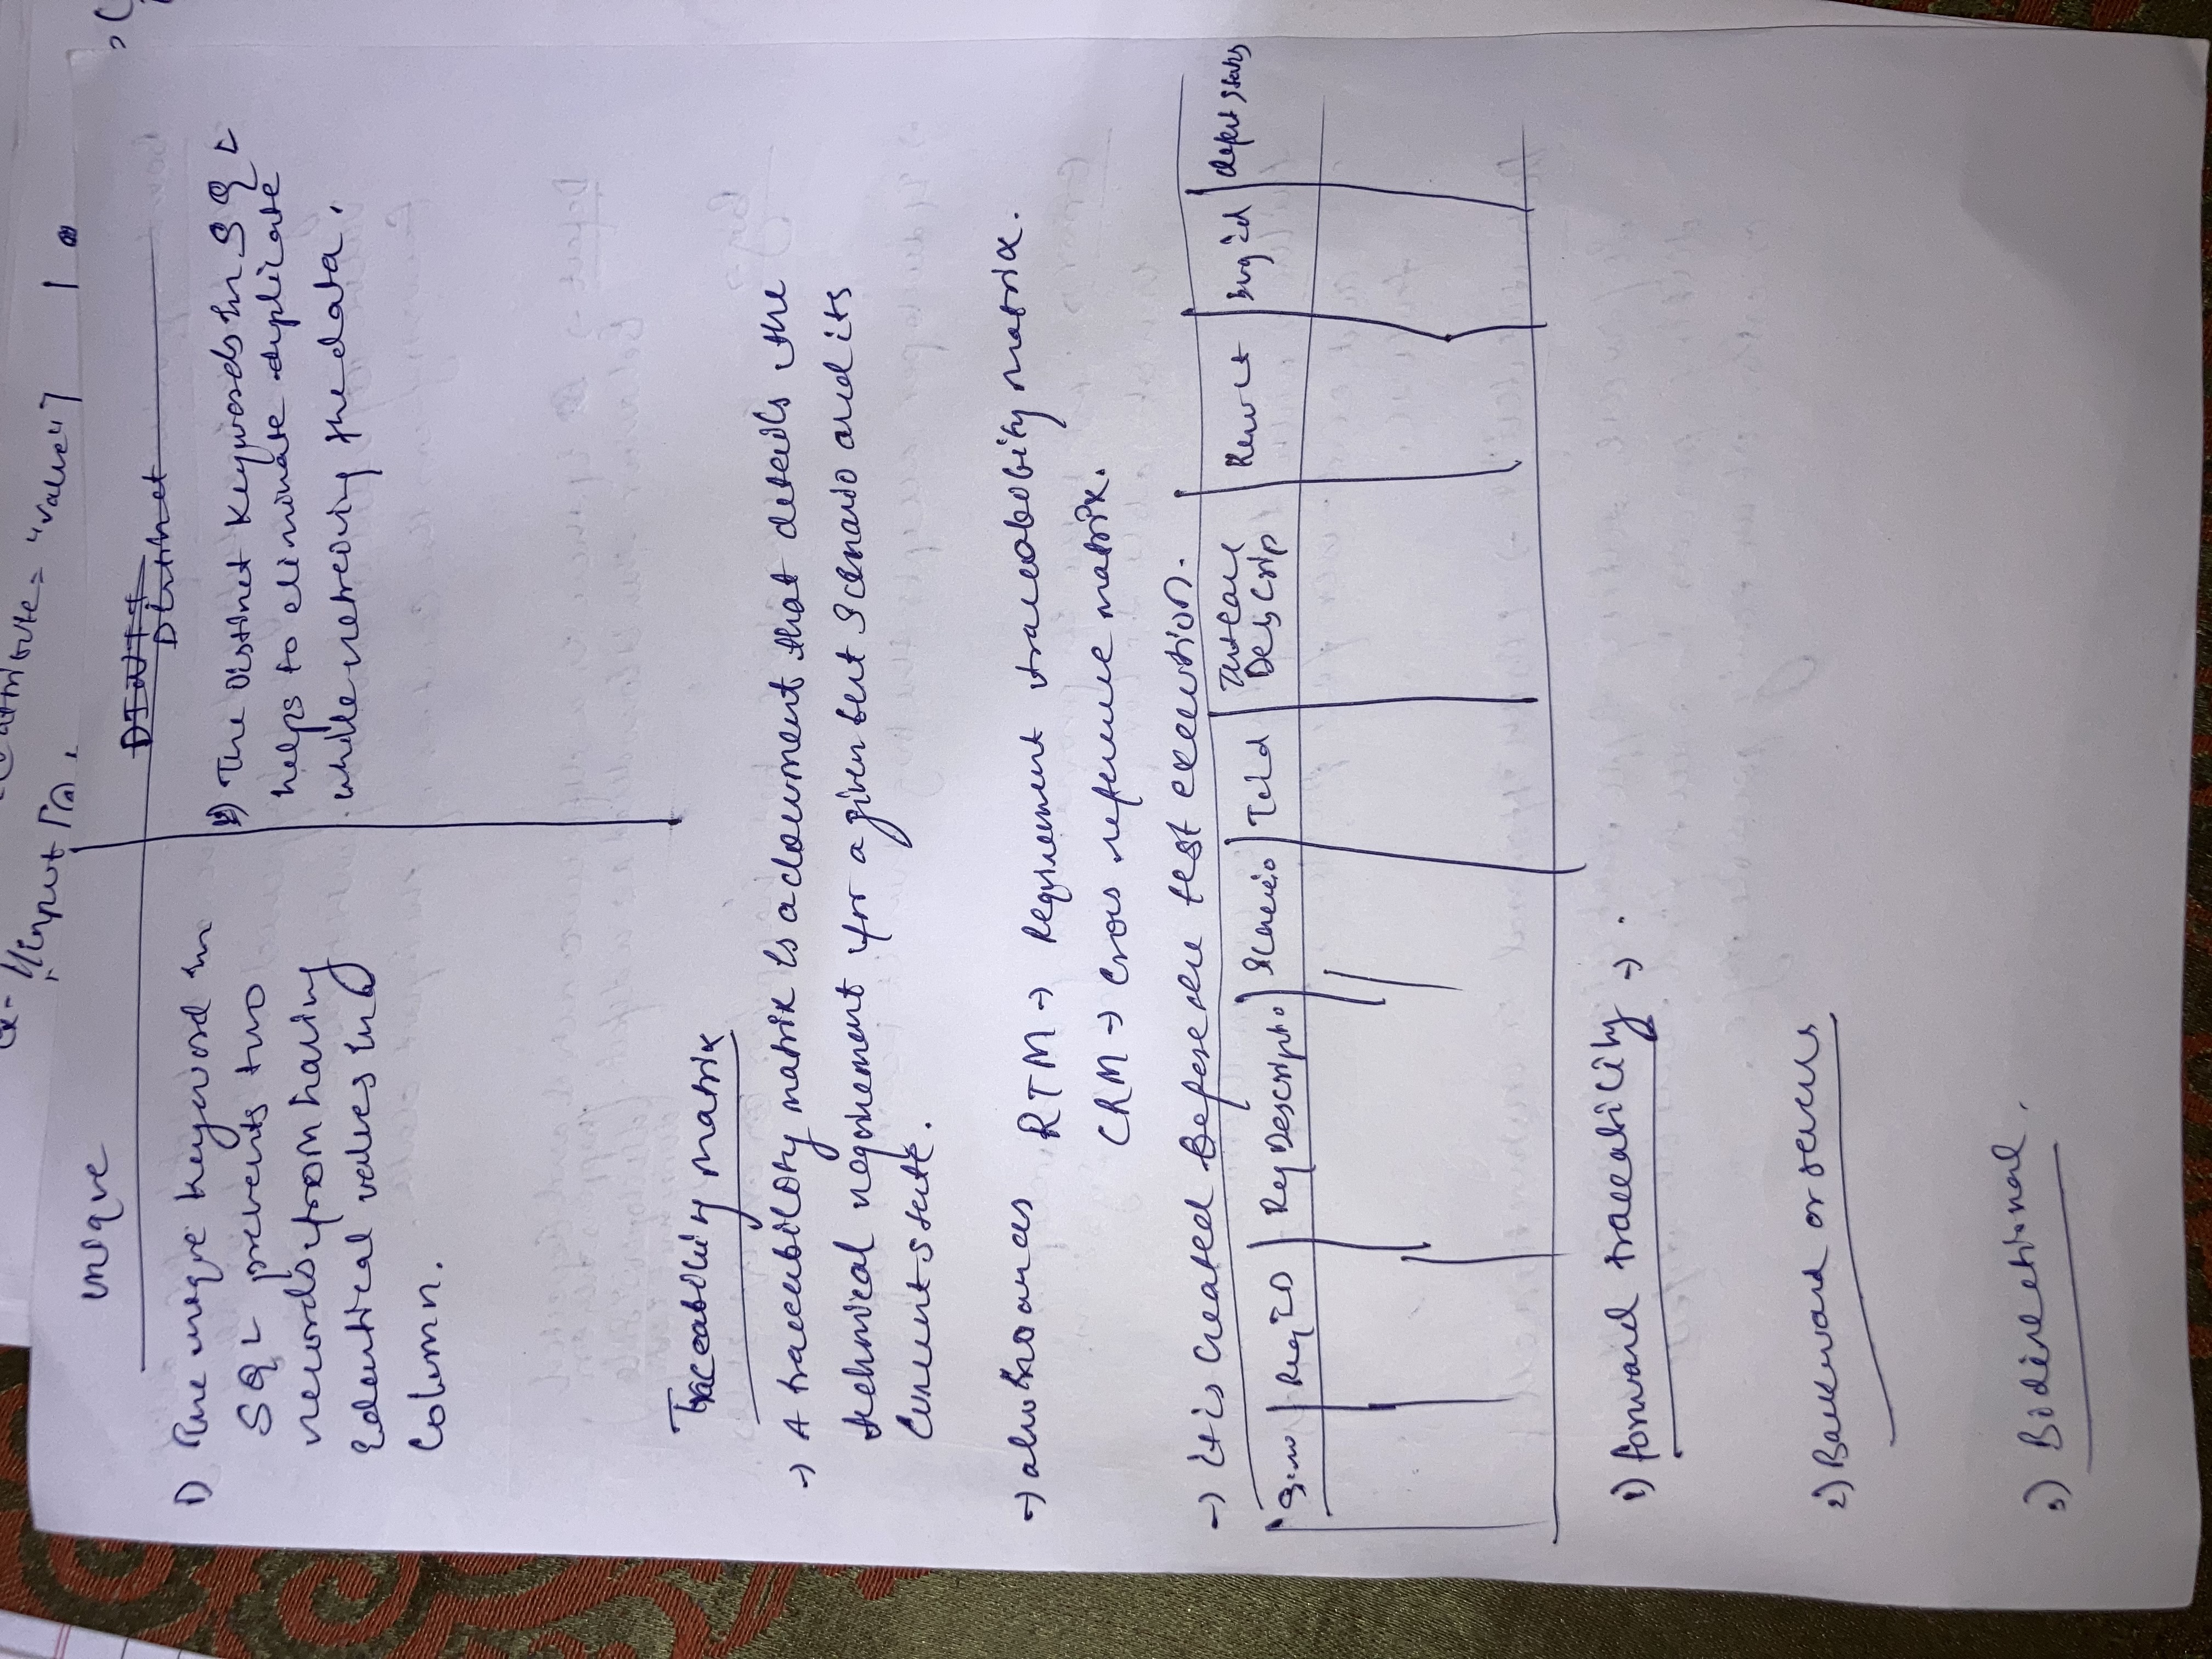 attribute = "value"]
//input [@
unique
Distinct
1) The unique keyword in
SQL prevents two
records from having
Edentical values in a
Column.
The Distinct Keywords in SQL
helps to eliminate duplicate
while retreiving the data.
Traceability matrix
→ A traceability matrix is a document that details the
technical requirement for a given test Scenario and its
Current state.
→ also known as
RTM → Requirement traceability matrix.
CRM → Cross reference matrix.
→ it is Created before the test execution.
S.no | Req ID | Req Descriptio | Scenario | Tcid | Testcase Descrip | Result | bug id | defect status
1) forward traceability → .
2) Backward or reverse
3) Bidirectional.